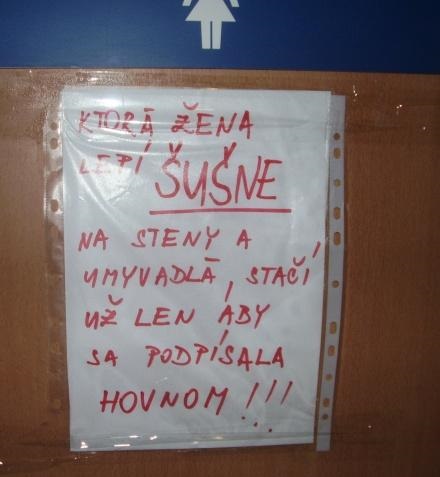 KTORÁ ŽENA
LEPÍ ŠUŠNE
NA STENY A
UMYVADLÁ, STAČÍ
UŽ LEN, ABY
SA PODPÍSALA
HOVNOM !!!